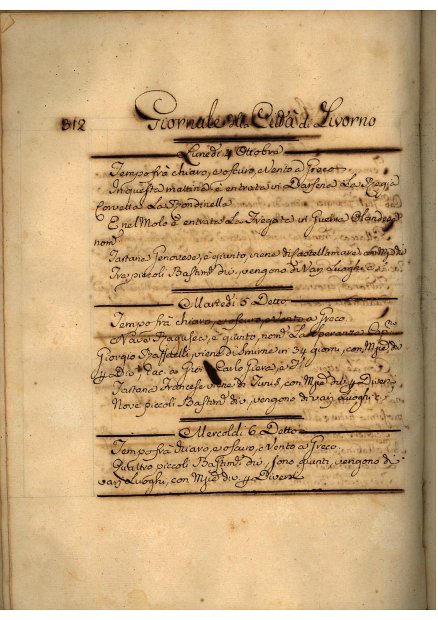 312 Giornale della Città di Livorno
Lunedi 4 Ottobre
Tempo frà chiaro, e oscuro, e Vento a Greco
In questa mattina è entrata in Darsena la Regia
Corvetta La Rondinella
E nel Molo è entrata La Fregata in Guerra Olandese
nomᵃ
Tartana Genovese, è giunto, viene di Castellamare con
Tre piccoli Bastimᵗⁱ divˢⁱ vengono di Varj Luoghi
Martedi 5 Detto
Tempo frà chiaro, e oscuro, e Vento a Greco
Nave Ragusea, è giunto, nomᵃ La Speranza Capⁿᵒ
Giorgio viene di Smirne in 34 giorni, con
Carlo
Tartana Francese viene di Tunis, con
Nove piccoli Bastimᵗⁱ divˢⁱ vengono di varj luoghi
Mercoldi 6 Detto
Tempo frà chiaro, e oscuro, e Vento a Greco
Quattro piccoli Bastimᵗⁱ divˢⁱ sono giunti, vengono di
varj Luoghi, con divˢⁱ p Diversi